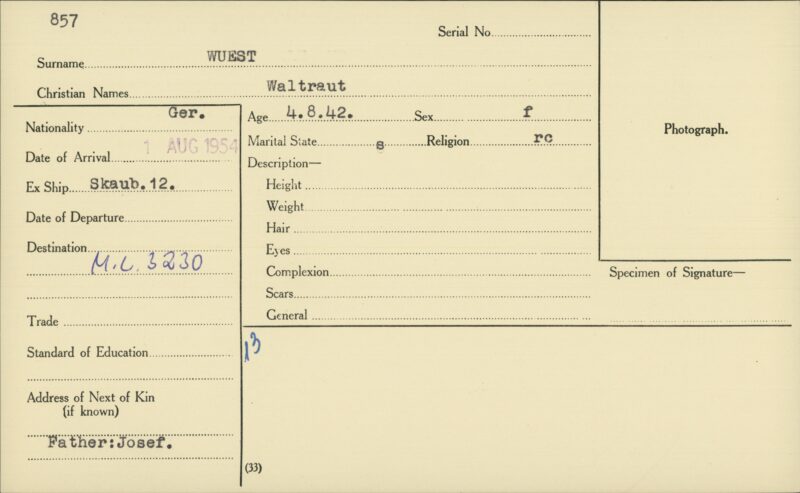 857
Serial No.
Surname WUEST
Christian Names Waltraut
Nationality Ger.
Date of Arrival 1 AUG 1954
Ex Ship Skaub.12.
Date of Departure
Destination
M.L. 3230
Trade
Standard of Education
Address of Next of Kin
(if known)
Father:Josef.
Age 4.8.42. Sex f
Marital State s Religion rc
Description—
Height
Weight
Hair
Eyes
Complexion
Scars
General
13
(33)
Photograph.
Specimen of Signature—